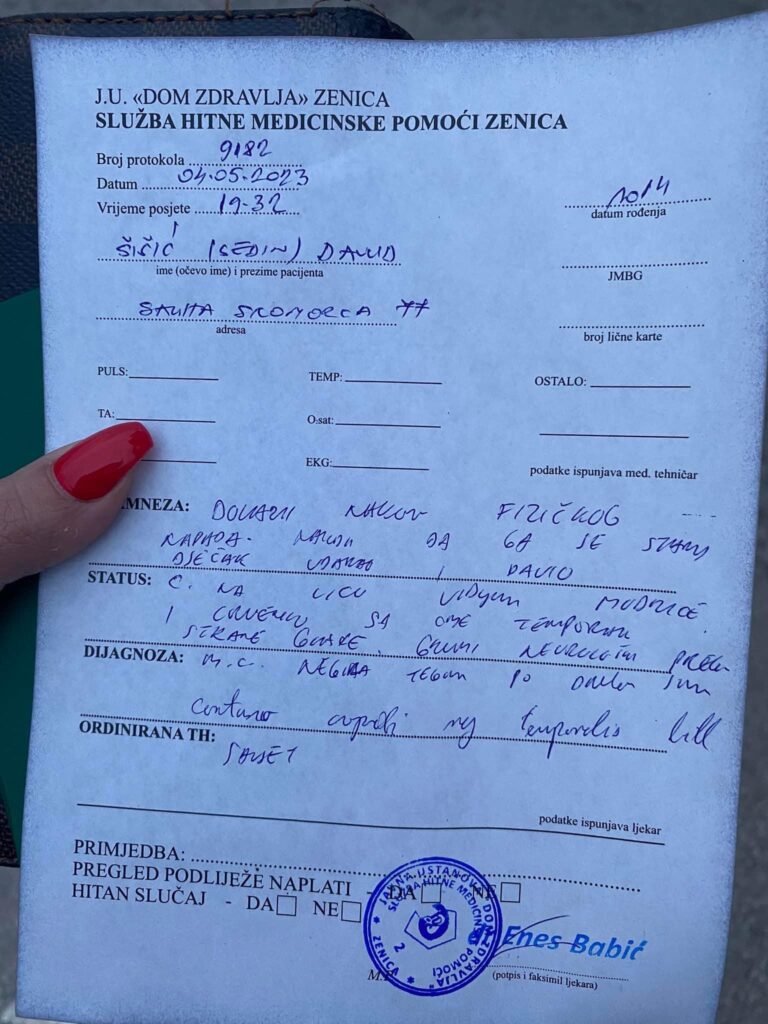 J.U. «DOM ZDRAVLJA» ZENICA
SLUŽBA HITNE MEDICINSKE POMOĆI ZENICA
Broj protokola 9182
Datum 04.05.2023
Vrijeme posjete 19-32
2014
datum rođenja
ŠIŠIĆ (SEDIN) DAVUD
ime (očevo ime) i prezime pacijenta
JMBG
adresa
broj lične karte
PULS:
TEMP:
OSTALO:
TA:
O₂sat:
EKG:
podatke ispunjava med. tehničar
MNEZA: DOLAZI NAKON FIZIČKOG
NAPADA. NAKON DA GA JE STARIJI
DJEČAK UDARAO I DAVIO
STATUS: NA LICU VIDLJIVE MODRICE
I CRVENILO SA TEMPORALNE
STRANE GLAVE. GRUBI NEUROLOŠKI
DIJAGNOZA: NEGIRA TEGOBE PO
Contusio capitis reg temporalis
ORDINIRANA TH:
SAVJET
podatke ispunjava ljekar
PRIMJEDBA:
PREGLED PODLIJEŽE NAPLATI - DA NE
HITAN SLUČAJ - DA NE
JAVNA USTANOVA "DOM ZDRAVLJA" ZENICA
SLUŽBA HITNE MEDICINSKE POMOĆI
2
dr Enes Babić
M.P.
(potpis i faksimil ljekara)